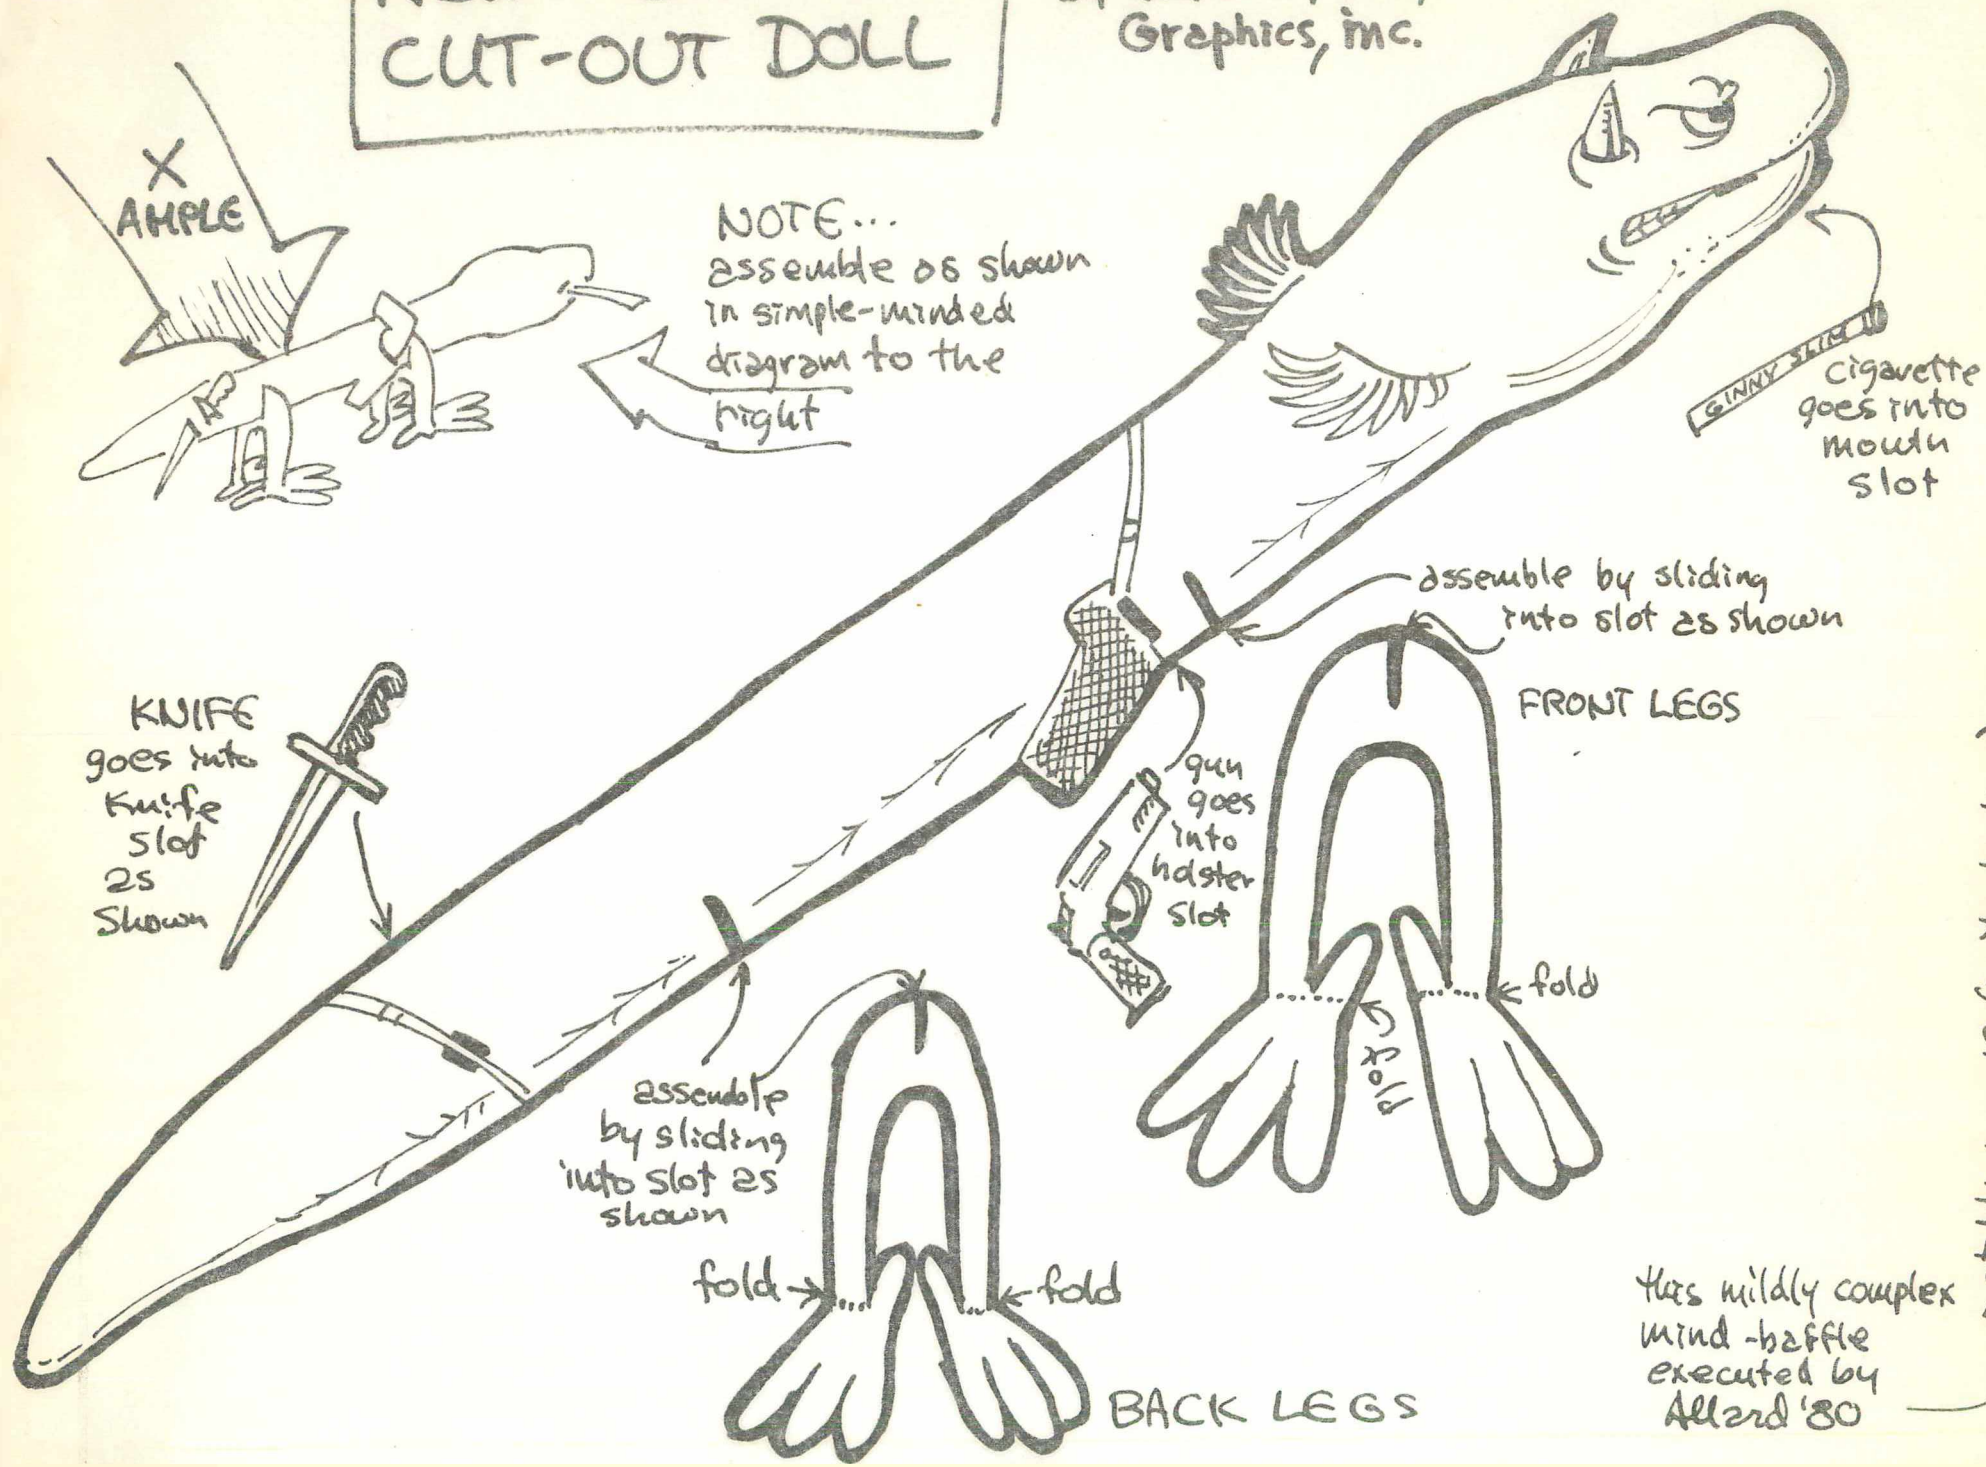 CUT-OUT DOLL
Graphics, inc.
X
AMPLE
NOTE...
assemble as shown
in simple-minded
diagram to the
right
GINNY SLIM
cigarette
goes into
mouth
slot
assemble by sliding
into slot as shown
FRONT LEGS
KNIFE
goes into
Knife
slot
as
shown
gun
goes
into
holster
slot
fold
fold
assemble
by sliding
into slot as
shown
fold
fold
BACK LEGS
this mildly complex
mind-baffle
executed by
Allard '80